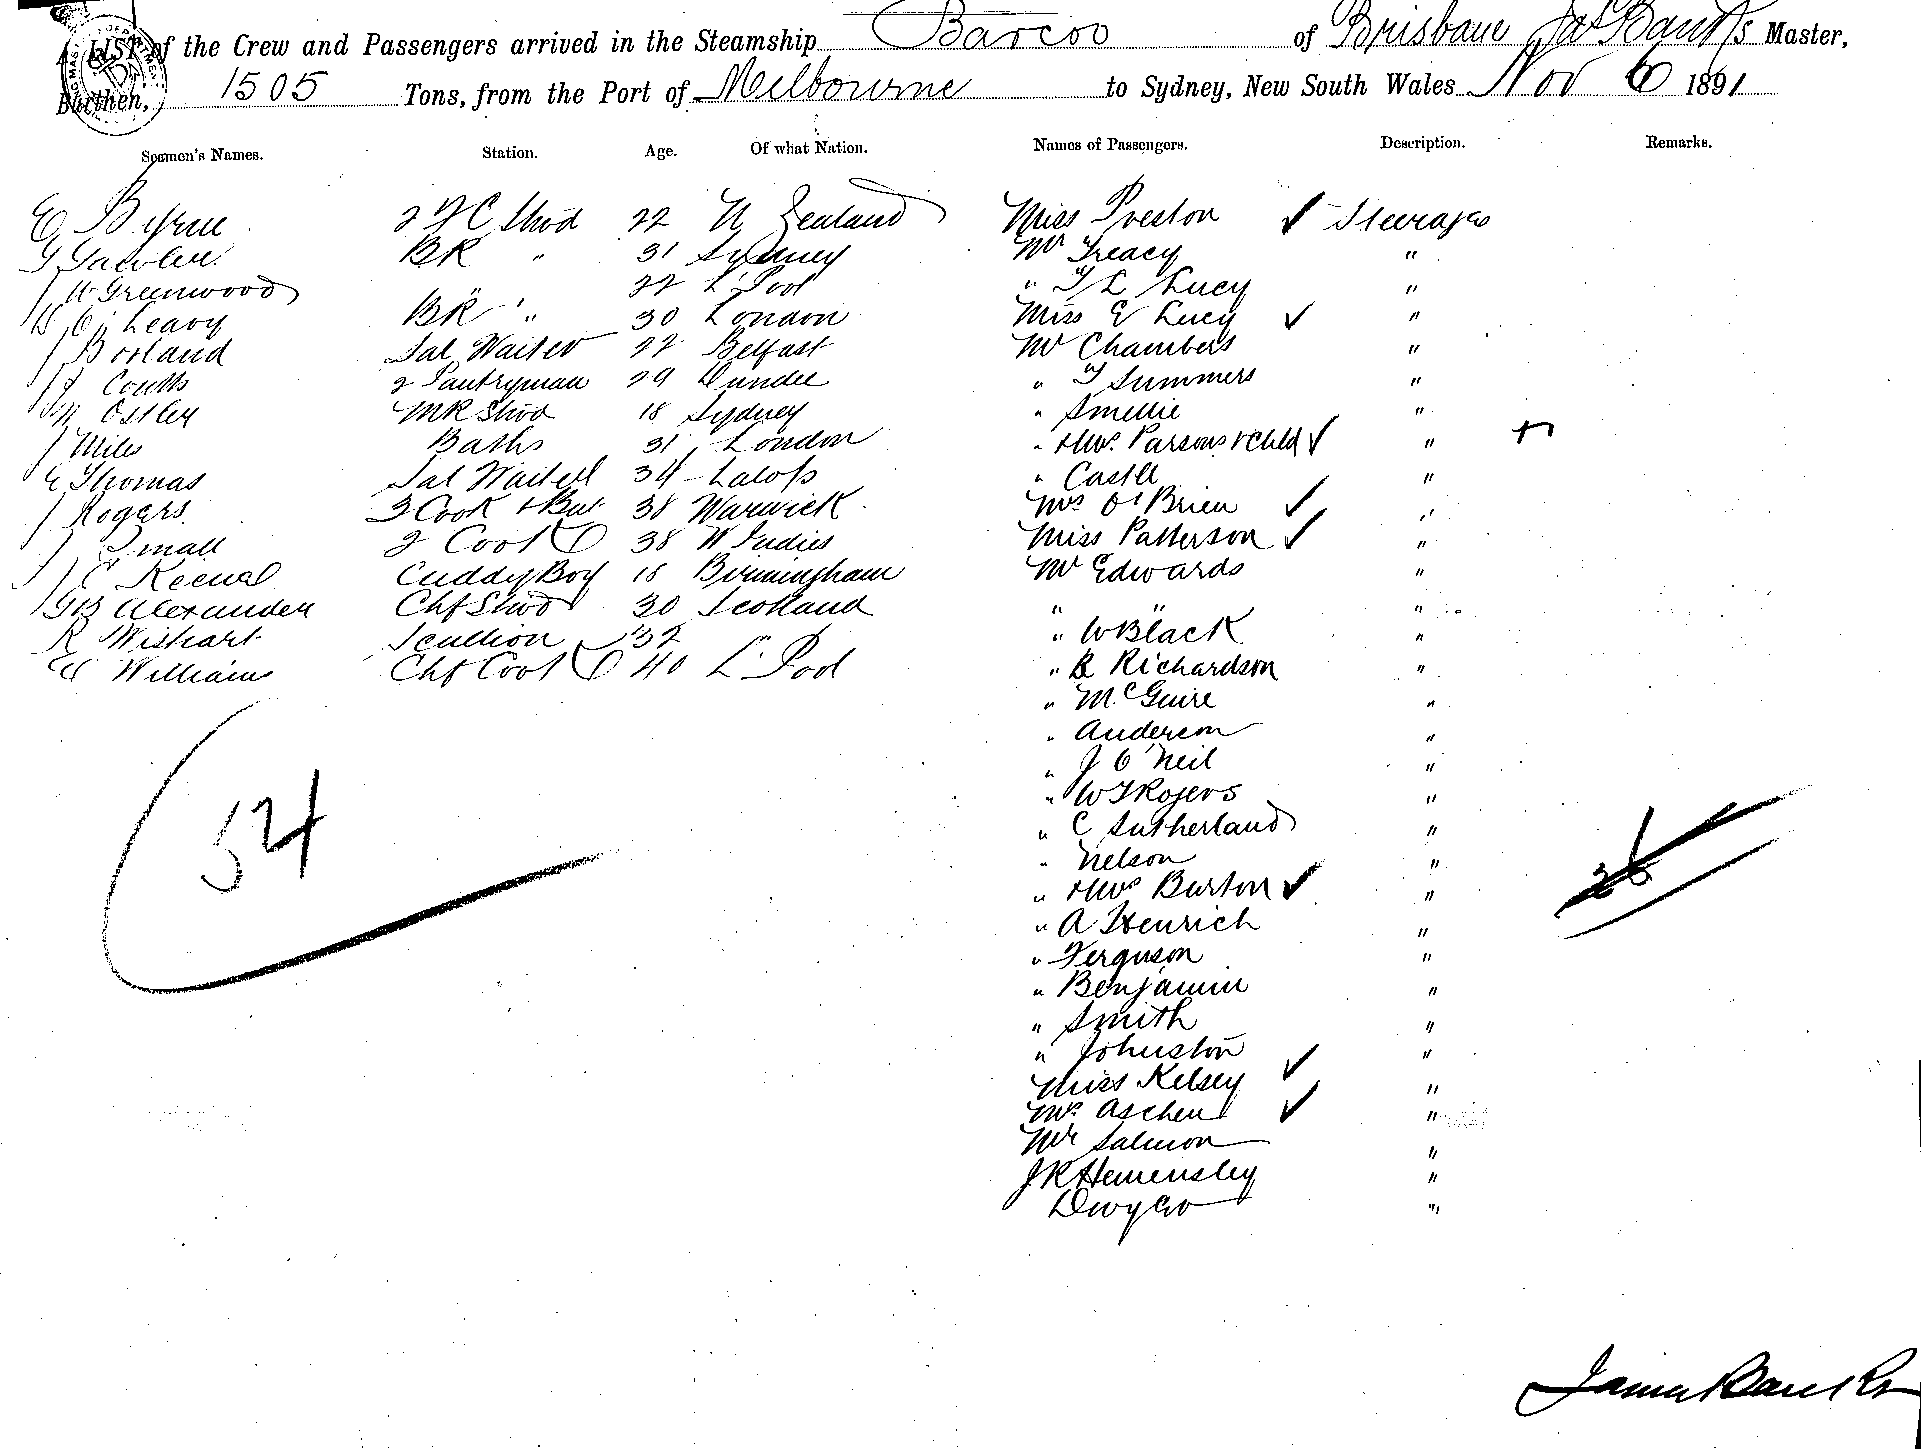 A LIST of the Crew and Passengers arrived in the Steamship Barcoo of Brisbane Jas Banks Master,
Burthen, 1505 Tons, from the Port of Melbourne to Sydney, New South Wales Nov 6 1891
Seamen's Names. Station. Age. Of what Nation. Names of Passengers. Description. Remarks.
E Byrne 2 22 N Zealand Miss Preston ✓ Steerage
BR " 31 Sydney Mr Treacy "
H Greenwood " " 22 L'Pool " T L Lucy "
Leavy BR " 30 London Miss E Lucy ✓ "
J Borland Sal Waiter 22 Belfast Mr Chambers "
J Coutts 2 Pantryman 29 Dundee " T Summers "
Ostler MR Stwd 18 Sydney " Smellie "
J Miles Baths 31 London " & Mrs. Parsons & Child ✓ "
E Thomas Sal Waiter 34 " Castle "
J Rogers 3 Cook & 38 Warwick Mrs O'Brien ✓ "
J Small 2 Cook 38 W Indies Miss Patterson ✓ "
J C Cuddy Boy 18 Birmingham Mr Edwards "
Alexander Chf Stwd 30 Scotland " " "
R Wishart Scullion 32 " W Black "
Williams Chf Cook 40 L'Pool " R Richardson "
" McGuire "
" Anderson "
" J O'Neil "
" W T Rogers "
54 " C Sutherland "
" Nelson "
" & Mrs Burton ✓ "
" A Henrich "
" Ferguson "
" Benjamin "
" Smith "
" Johnston "
Miss Kelsey ✓ "
Mrs Aschen ✓ "
Mr Salmon "
J R Hemensley "
Dwyer "
36
James Banks